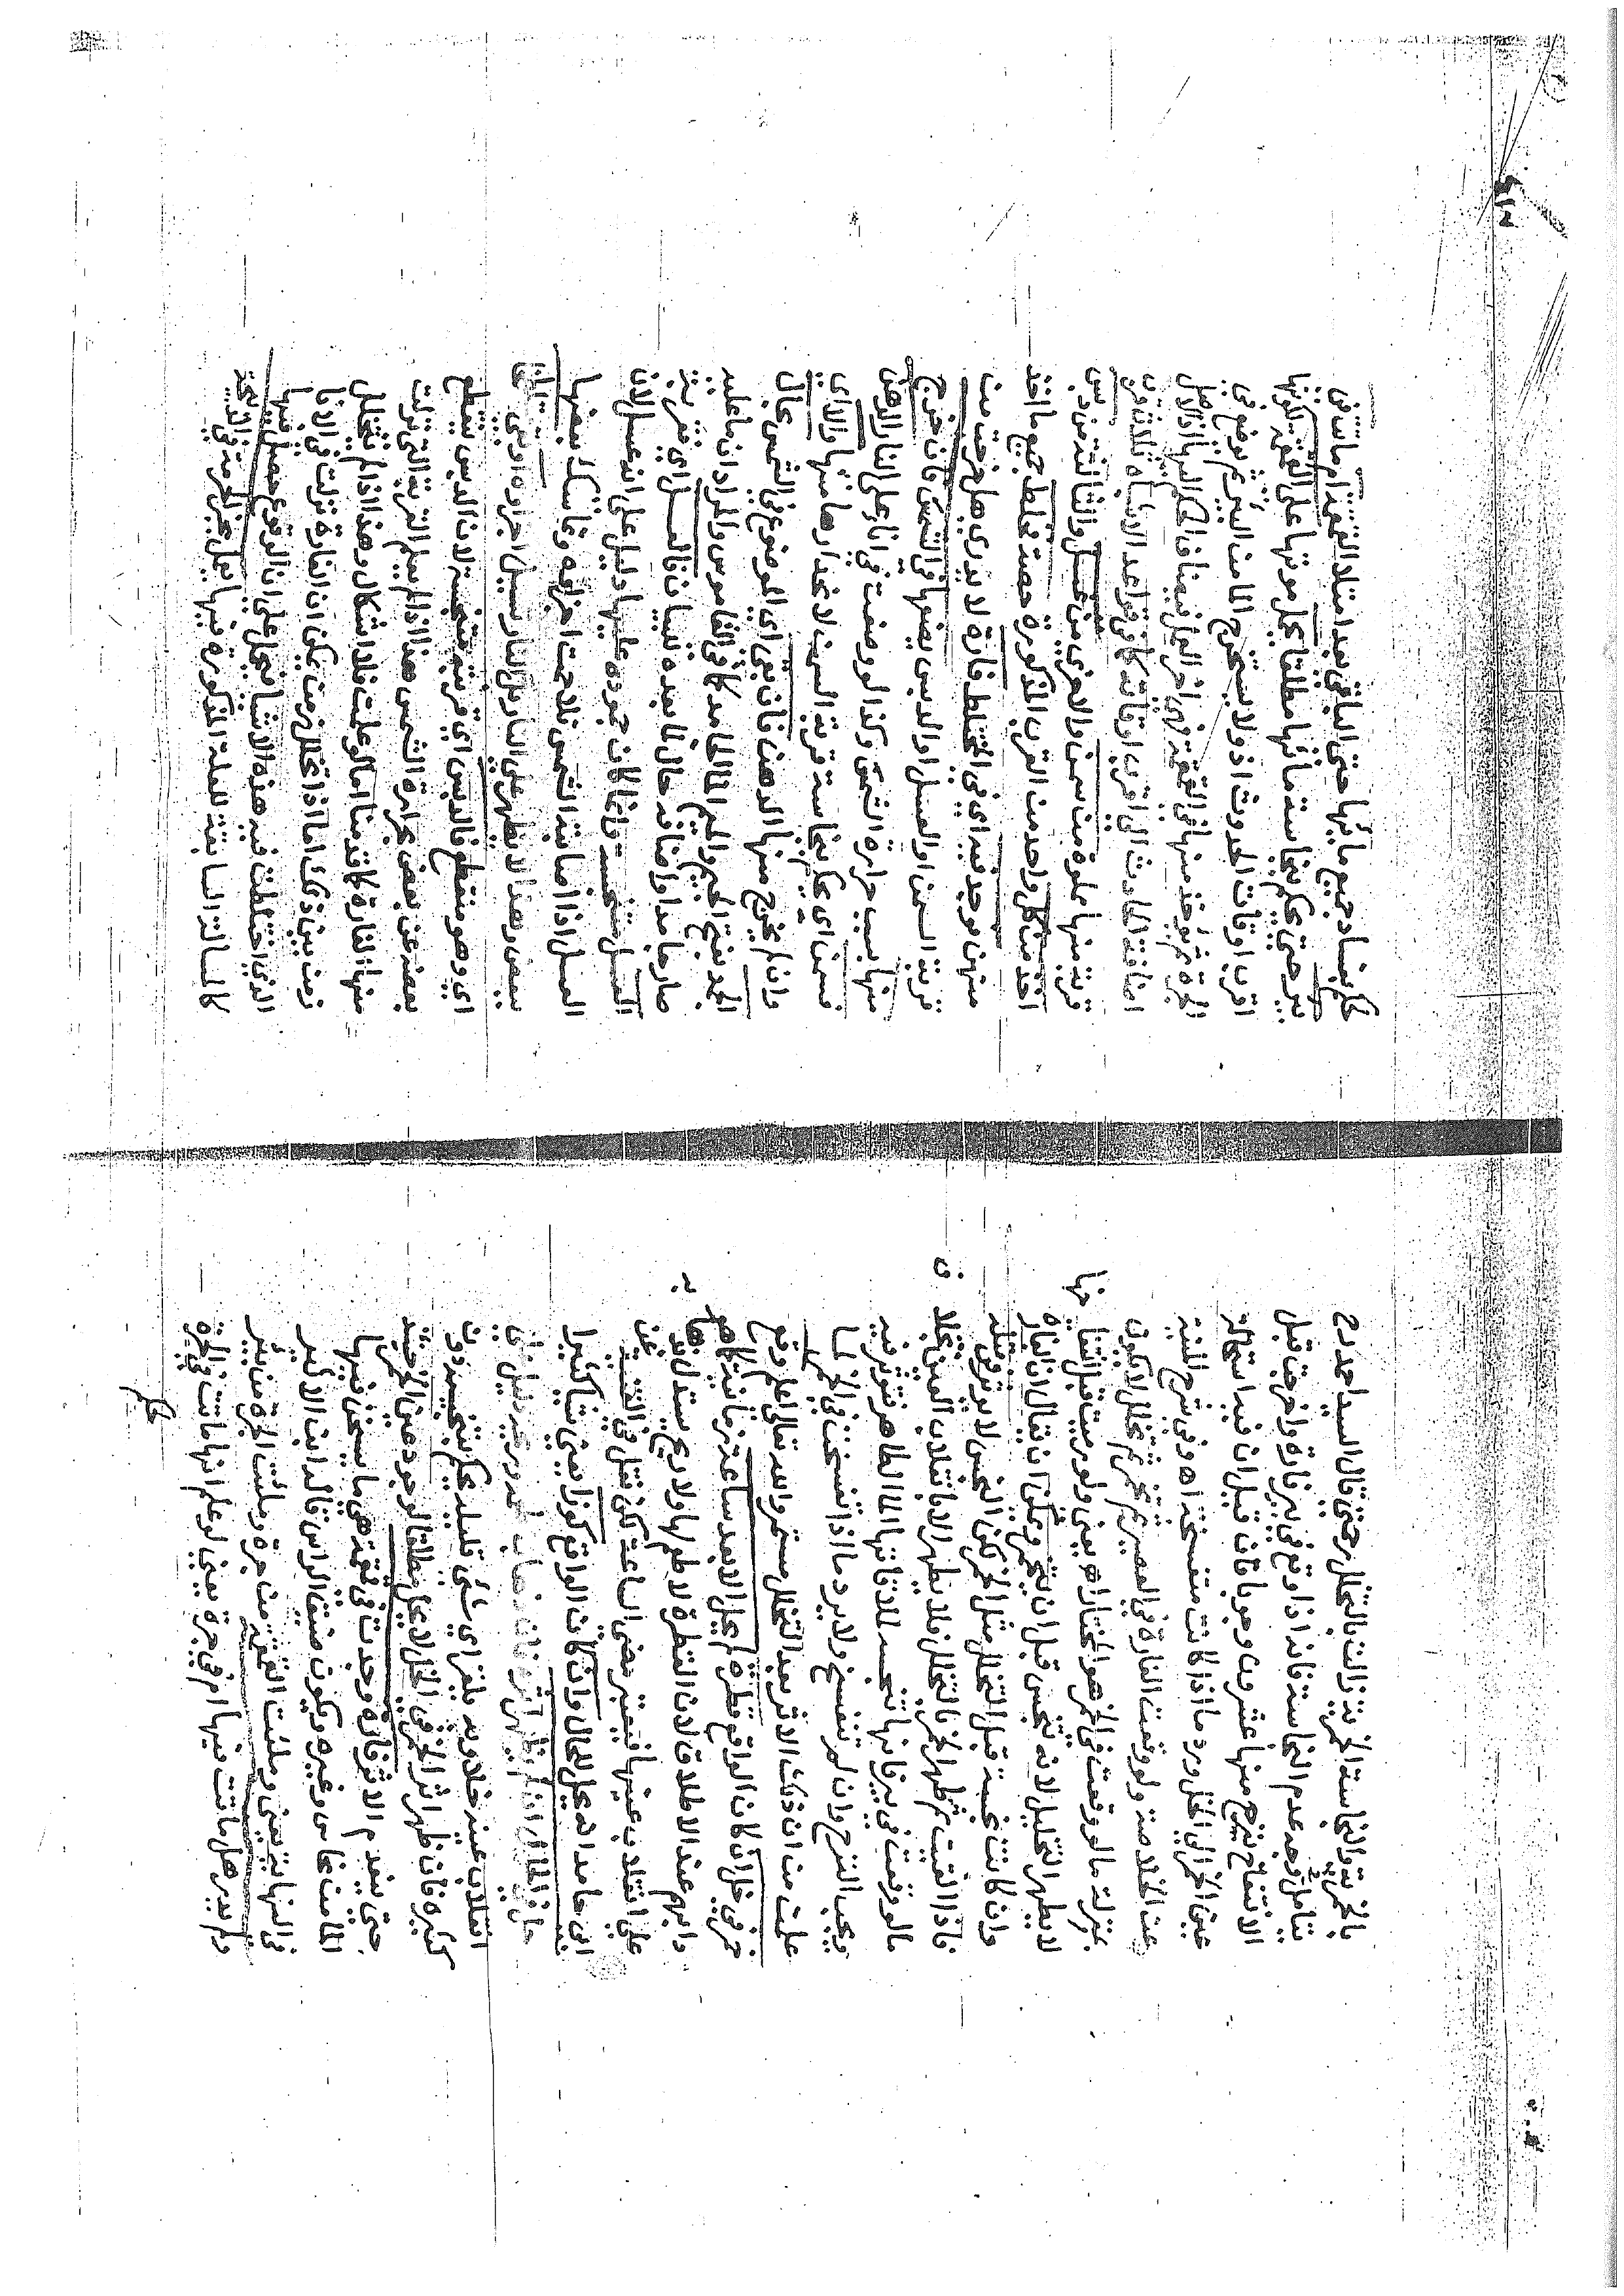 بالخمرية والنجاسة الخمرية زالت بالتخلل رحمتي قال السيد احمد رح
يتأمل وجه عدم النجاسة فانه اذا وقع في بئر فارة واخرجت قبل
الانتفاخ ينزح منها عشرون وجوبا فان قيل ان فيه استحالة
عين الخمر الى الخل ورد ما اذا كانت متفسخة اه وفي شرح المنية
عن الخلاصة ولو وقعت الفارة في العصير ثم تخمر ثم تخلل لا يكون
بمنزلة ما لو وقعت في الخمر هو المختار اه يعني ولو رميت قبل
لا يطهر التخليل لانه تنجس قبل ان يتخمر ويمكن ان يقال ان الفارة
وان كانت نجسة قبل التخلل مثل الخمر لكن النجس لا يؤثر في مثله
فاذا القيت ثم طهر الخمر بالتخلل فلا يطهر الا بانقلاب العين بخلا
ما لو وقعت في بئر فانها تنجسه لملاقاتها الماء الطاهر فتؤثر فيه
ويجب النزح وان لم تتفسخ ولا يرد ما اذا تفسخت في الخمر لما
علمت من ان ذلك الاثر بعد التخلل مستمر والله تعالى اعلم وقع
خمر في خل ان كان الواقع قطرة لم يحل الا بعد ساعة زمانية كما هو
عند الاطلاق لان القطرة لا طعم لها ولا ريح يستدل بها
على انقلاب عينها فيعتبر مضي الساعة لكن نقل في القنية عن
ابي حامد انه يحل للحال وان كان الواقع كوزا يعني شيأ كثيرا
حل في الحال ان لم يظهر اثره
انقلاب عينه خلا وبه يلغز اي شئ قليله يحكم بتنجسه دون
كثيره فان ظهر اثر الخمر في الخل لا يحل مطلقا لوجود عين الخمر فيه
حتى ينعدم الاثر فارة وجدت في قمقمة هي ما يسخن فيها
الماء من نحاس وغيره ويكون ضيق الراس قاله ابن الاثير
في النهاية يعني وملئت القمقمة من جرة وملئت الجرة من بئر
ولم يدر هل ماتت فيها ام في جرة يعني لو علم انها ماتت في الجرة
حكم
حكم بفساد جميع مائها حتى الباقي بعد امتلاء القمقمة ام ماتت في
بئر حتى يحكم بنجاسة مائها مطلقا يحمل موتها على القمقمة لكونها
اقرب اوقات الحدوث اذ ولا يستخرج الماء من البئر ثم يوضع في
الجرة ثم يؤخذ منها في القمقمة وفي اخر
اضافة الحادث الى اقرب اوقاته كما في قواعد الاشباه ثلاث قرب
قربة منها مملوة من سمن والاخرى من عسل والثالثة من دبس
اخذ من كل واحد من القرب المذكورة حصة فخلط جميع ما اخذ
منهن فوجد فيه اي في المختلط فارة لا يدري هل خرجت من
قربة السمن او العسل او الدبس يضعها في الشمس فان خرج
منها بسبب حرارة الشمس وكذا لو وضعت في اناء على النار الدهن
فسمن اي يحكم بنجاسة قربة السمن لانحدارها منها والا اي
وان لم يخرج منها الدهن فان بقي اي الموضوع في الشمس بحال
الجمد بفتح الجيم والميم الماء الجامد كما في القاموس والمراد ان ما عليه
صار جامدا واضافة حال لما بعده للبيان فالعسل اي فقربة
العسل متنجسة وانما كان جموده عليها دليل على انه عسل لان
العسل اذا اصابته الشمس تلاحمت اجزاؤه وتماسك بعضها
ببعض وهذا لا يظهر على النار بل النار تسيل اجزاؤه
اي وهو متقطع فالدبس اي قربته متنجسة لان الدبس يتقطع
بعضه عن بعض بحرارة الشمس هذا اذا لم يعلم القربة التي نزلت
منها الفارة كما قدمنا اما لو علمت فلا اشكال وهذا اذا لم يتخلل
زمن بين ذلك اما اذا تخلل زمن يمكن ان الفارة نزلت في الاناء
الذي اختلطت فيه هذه الاشياء فيحمل على ان الوقوع حصل فيها
كالمسألة السابقة للعلة المذكورة فيها يعمل بخبر الحرمة في الذبيحة